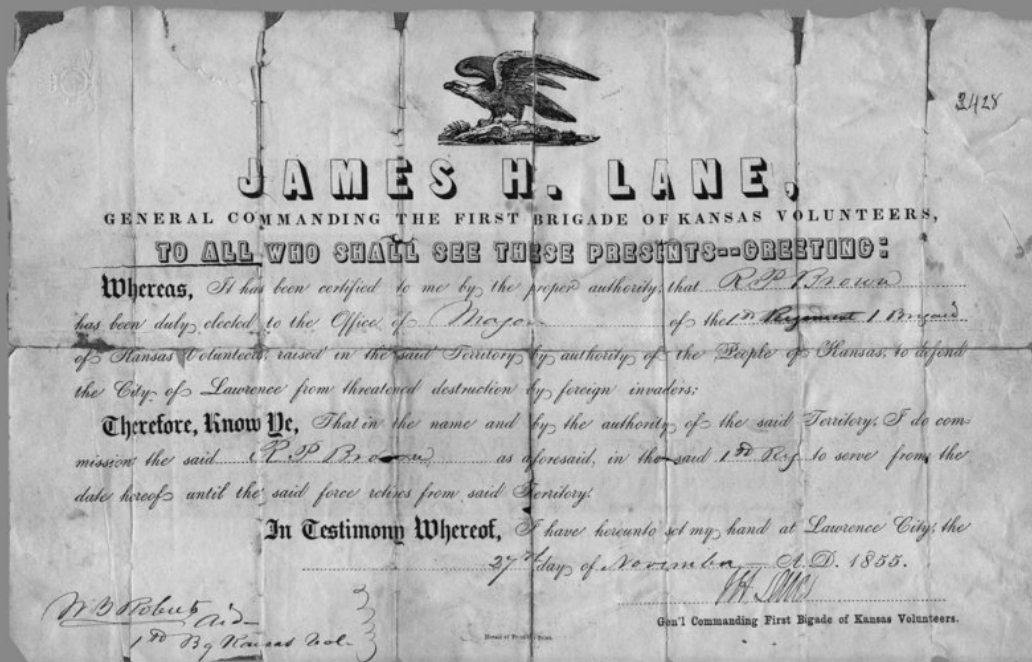 3428
JAMES H. LANE,
GENERAL COMMANDING THE FIRST BRIGADE OF KANSAS VOLUNTEERS,
TO ALL WHO SHALL SEE THESE PRESENTS--GREETING:
Whereas, It has been certified to me by the proper authority, that R. P. Brown
has been duly elected to the Office of Major of the 1st Regiment 1 Brigaid
of Kansas Volunteers, raised in the said Territory by authority of the People of Kansas, to defend
the City of Lawrence from threatened destruction by foreign invaders;
Therefore, Know Ye, That in the name and by the authority of the said Territory, I do com-
mission the said R. P. Brown as aforesaid, in the said 1st Reg to serve from the
date hereof until the said force retires from said Territory.
In Testimony Whereof, I have hereunto set my hand at Lawrence City, the
27th day of November A. D. 1855.
J H Lane
Gen'l Commanding First Bigade of Kansas Volunteers.
W B Roberts Aid
1st Bg Kansas Vol